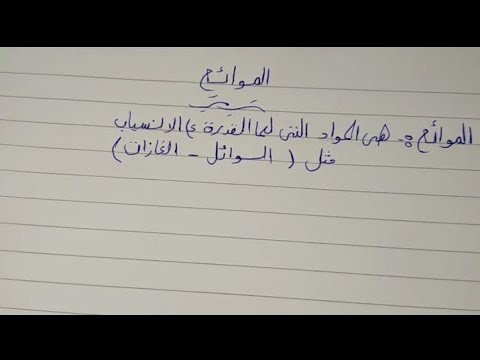 الموائع
الموائع :- هى المواد التى لها القدرة ع الانسياب
مثل ( السوائل - الغازات )